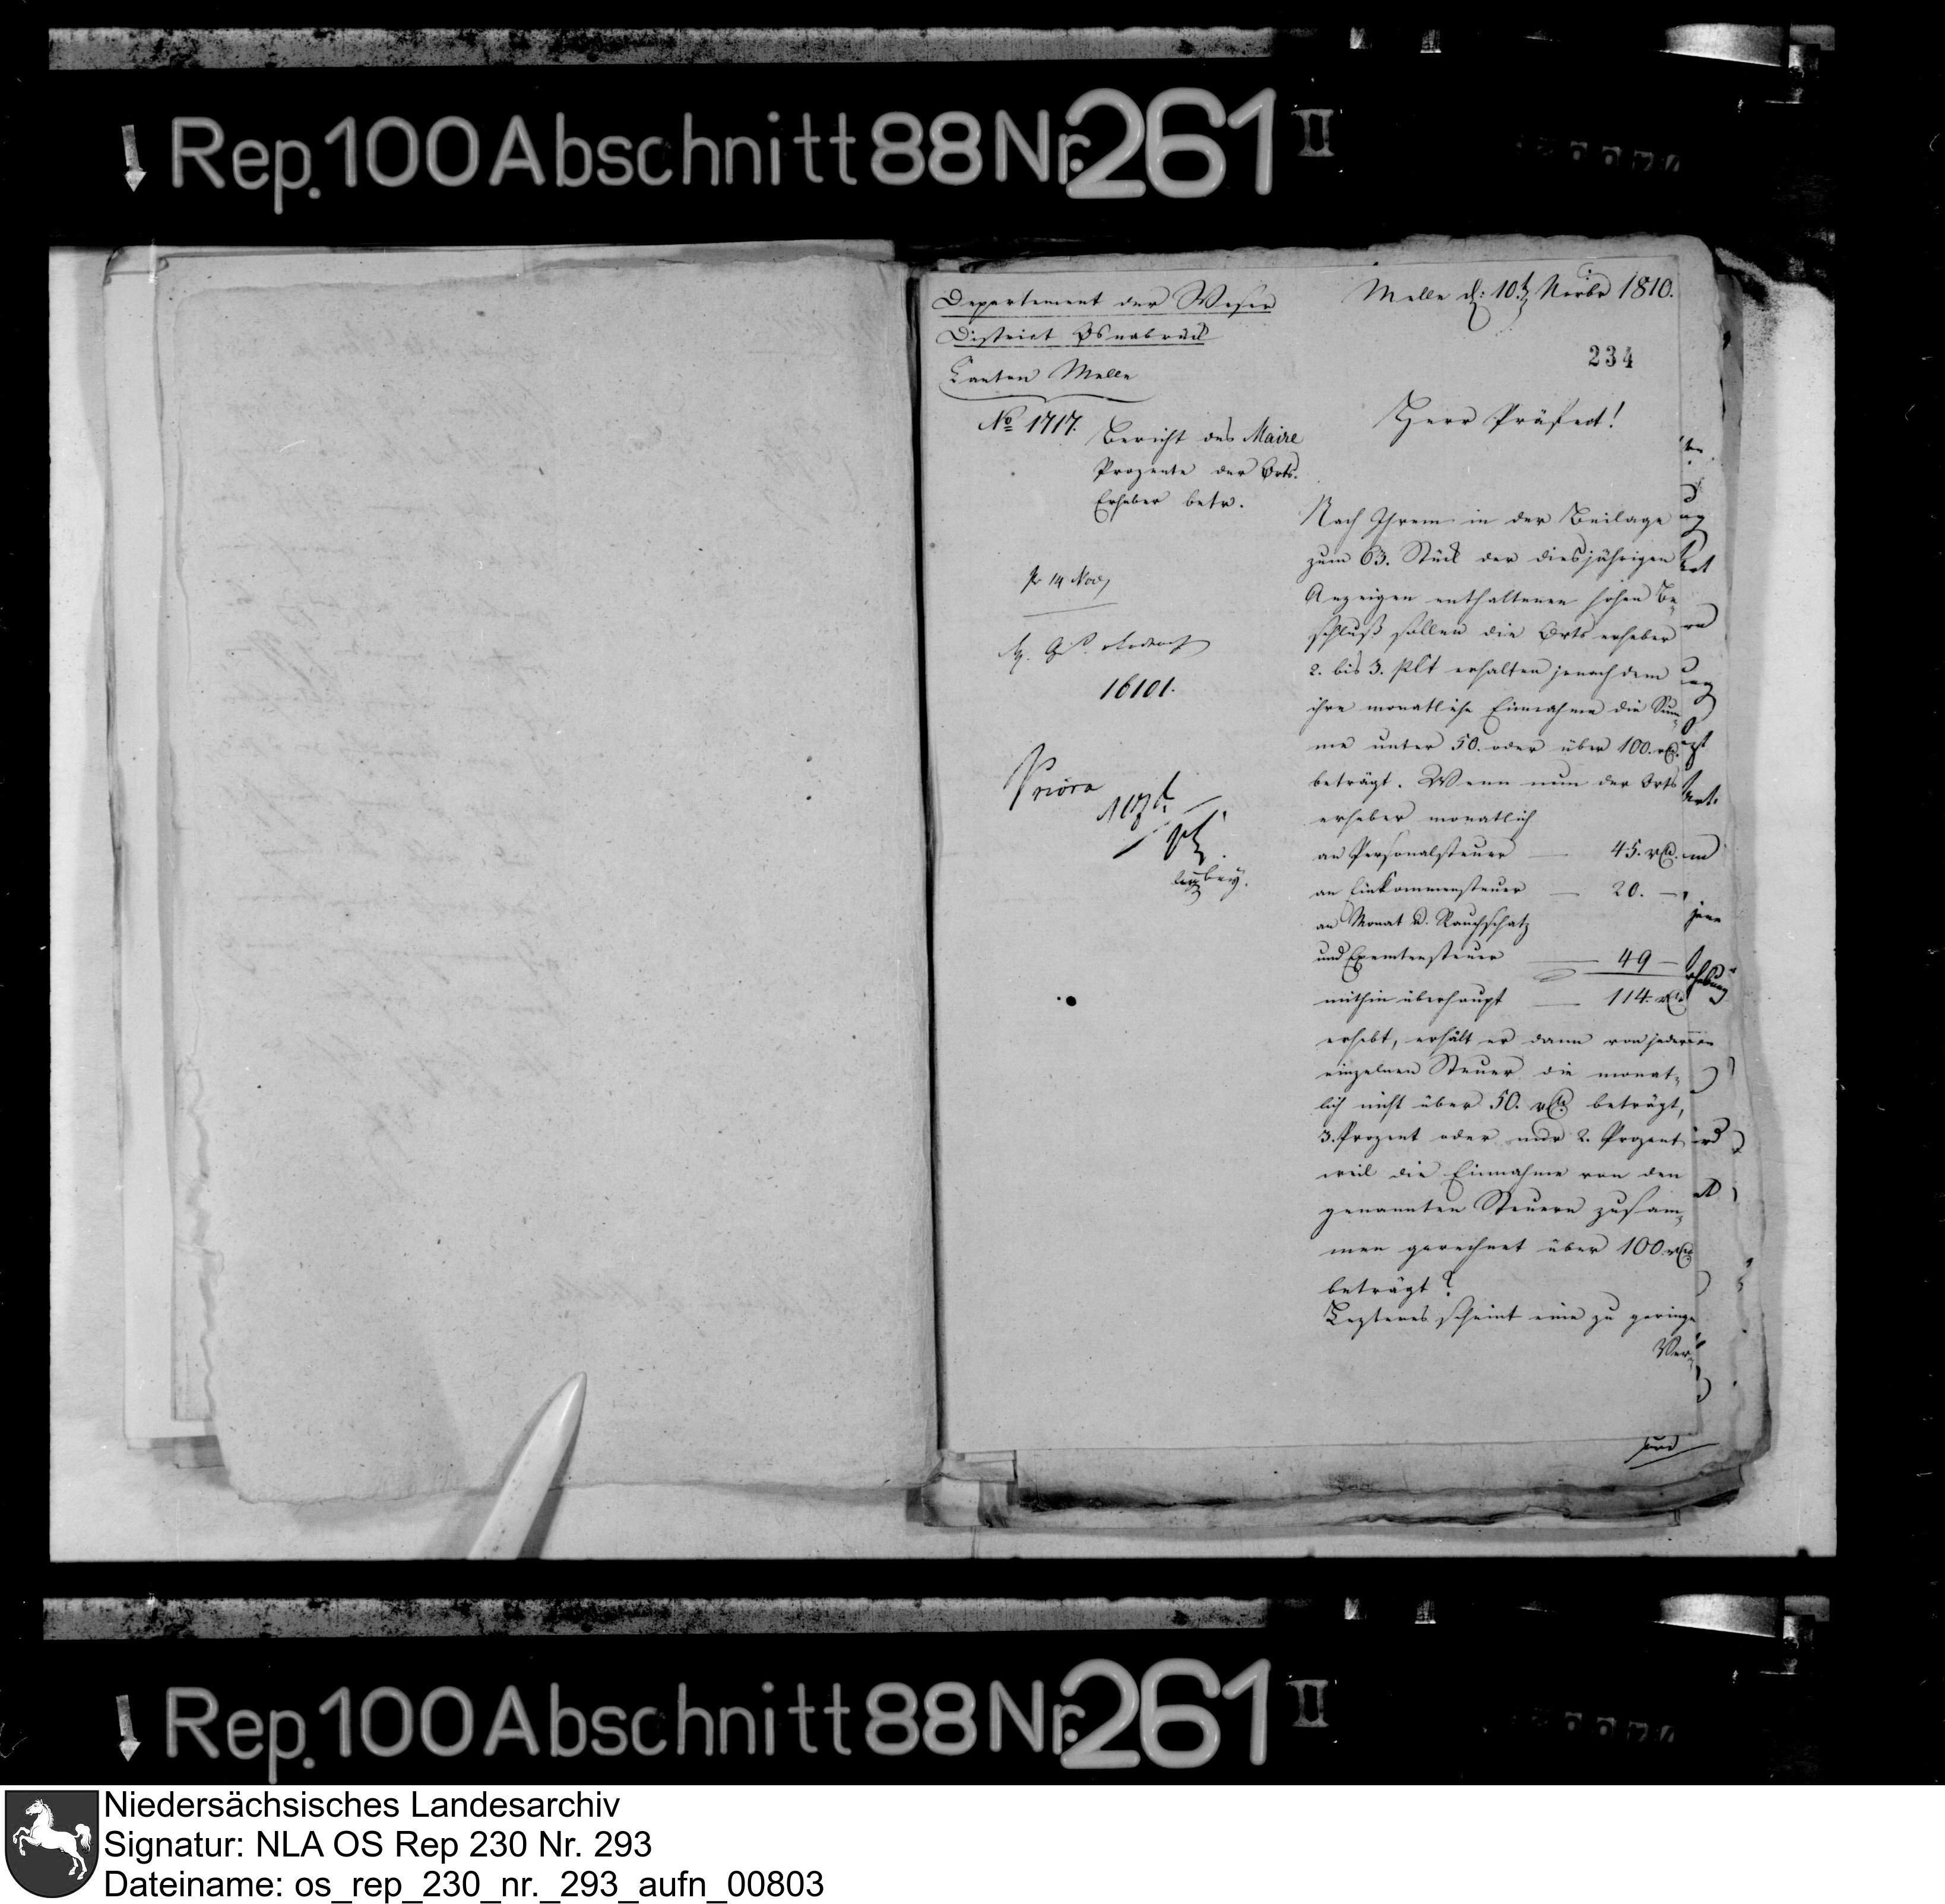 Rep. 100 Abschnitt 88 Nr. 261 II
Departement der Weser
District Osnabrück
Canton Melle
No 1717.
Bericht des Maire
Prozente der Orts-
Erheber betr.
pr 14 Nov
16101.
Priora
Melle d: 10t Novbr 1810.
234
Herr Präfect!
Nach Ihrem in der Beilage
zum 63. Stück der diesjährigen
Anzeigen enthaltenen hohen Be-
schluß sollen die Ortserheber
2. bis 3. pCt erhalten jenachdem
ihre monatliche Einnahme die Sum-
me unter 50. oder über 100. rt.
beträgt. Wenn nun der Orts
erheber monatlich
an Personalsteuer — 45. rt.
an Einkommensteuer — 20. —
an Monat u. Rauchschatz
und Exemtensteuer — 49 —
mithin überhaupt — 114. rt
erhebt, erhält er dann von jeder
einzelnen Steuer die monat-
lich nicht über 50. rt. beträgt,
3. Prozent oder nur 2. Prozent
weil die Einnahme von den
genannten Steuern zusam-
men gerechnet über 100 rt
beträgt?
Lezteres scheint eine zu geringe
Ver-
Rep. 100 Abschnitt 88 Nr. 261 II
Niedersächsisches Landesarchiv
Signatur: NLA OS Rep 230 Nr. 293
Dateiname: os_rep_230_nr._293_aufn_00803